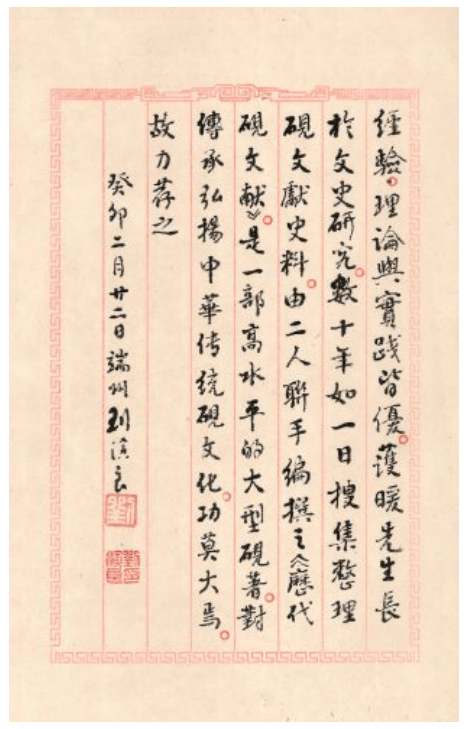 經驗。理論與實踐皆優。護暖先生長
於文史研究。數十年如一日搜集整理
硯文獻史料。由二人聯手編撰之《歷代
硯文献》。是一部高水平的大型硯著。對
傳承弘揚中華传统硯文化。功莫大焉。
故力荐之
癸卯二月廿二日端州刘演良